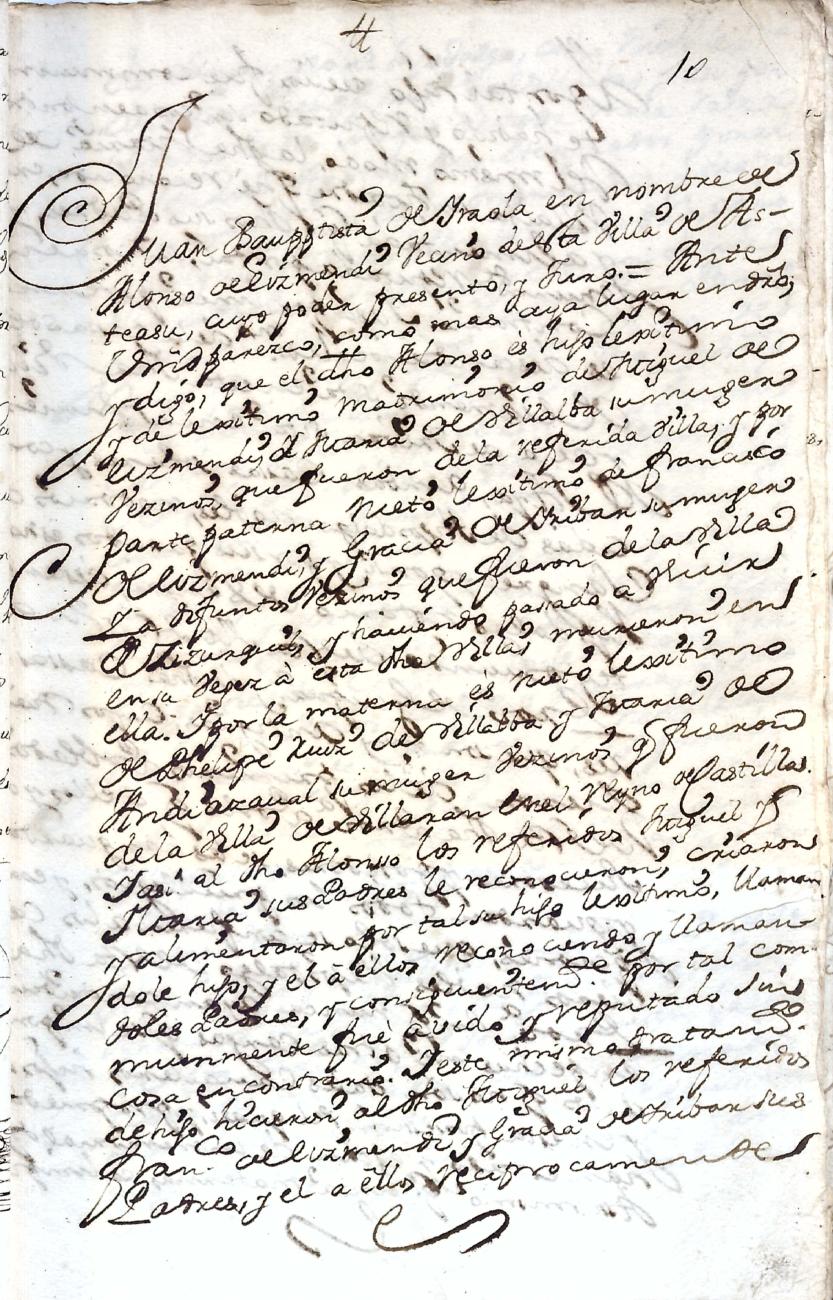 #
10
Juan Bauptista de Yraola en nombre de
Alonso de Lizmendi Vecino de esta Villa de As-
teasu, cuyo poder presento, y Juro.= Ante
Vmd parezco, como mas aya lugar en dro,
y digo, que el dho Alonso es hijo lexitimo
y de lexitimo matrimonio de Miguel de
Lizmendi, y Maria de Villalba su muger
Vezinos que fueron de la referida Villa, y por
parte paterna nieto lexitimo de francisco
de Lizmendi, y Gracia de Aribar su muger
Ya difuntos Vezinos que fueron de la Villa
de Zizurquil, y haviendo passado a Vivir
en su Vegez à esta dha Villa, murieron en
ella. Y por la materna es nieto lexitimo
de Phelipe Ruiz de Villalba y Maria de
Andiazaval su muger Vezinos q fueron
de la Villa de Villaran en el Reyno de Castilla.
Y asi al dho Alonso los referidos Miguel y
Maria sus Padres le reconocieron, criaron
y alimentaron por tal su hijo lexitimo, llaman
dole hijo, y el à ellos reconociendo y llaman-
doles Padres, y consiguientemte. por tal com-
munmente fuè avido y reputado sin
cosa en contrario. Y este mismo tratamto.
de hijo hicieron al dho Miguel los referidos
Franco. de Lizmendi y Gracia de Aribar sus
Padres, y el a ellos reciprocamente